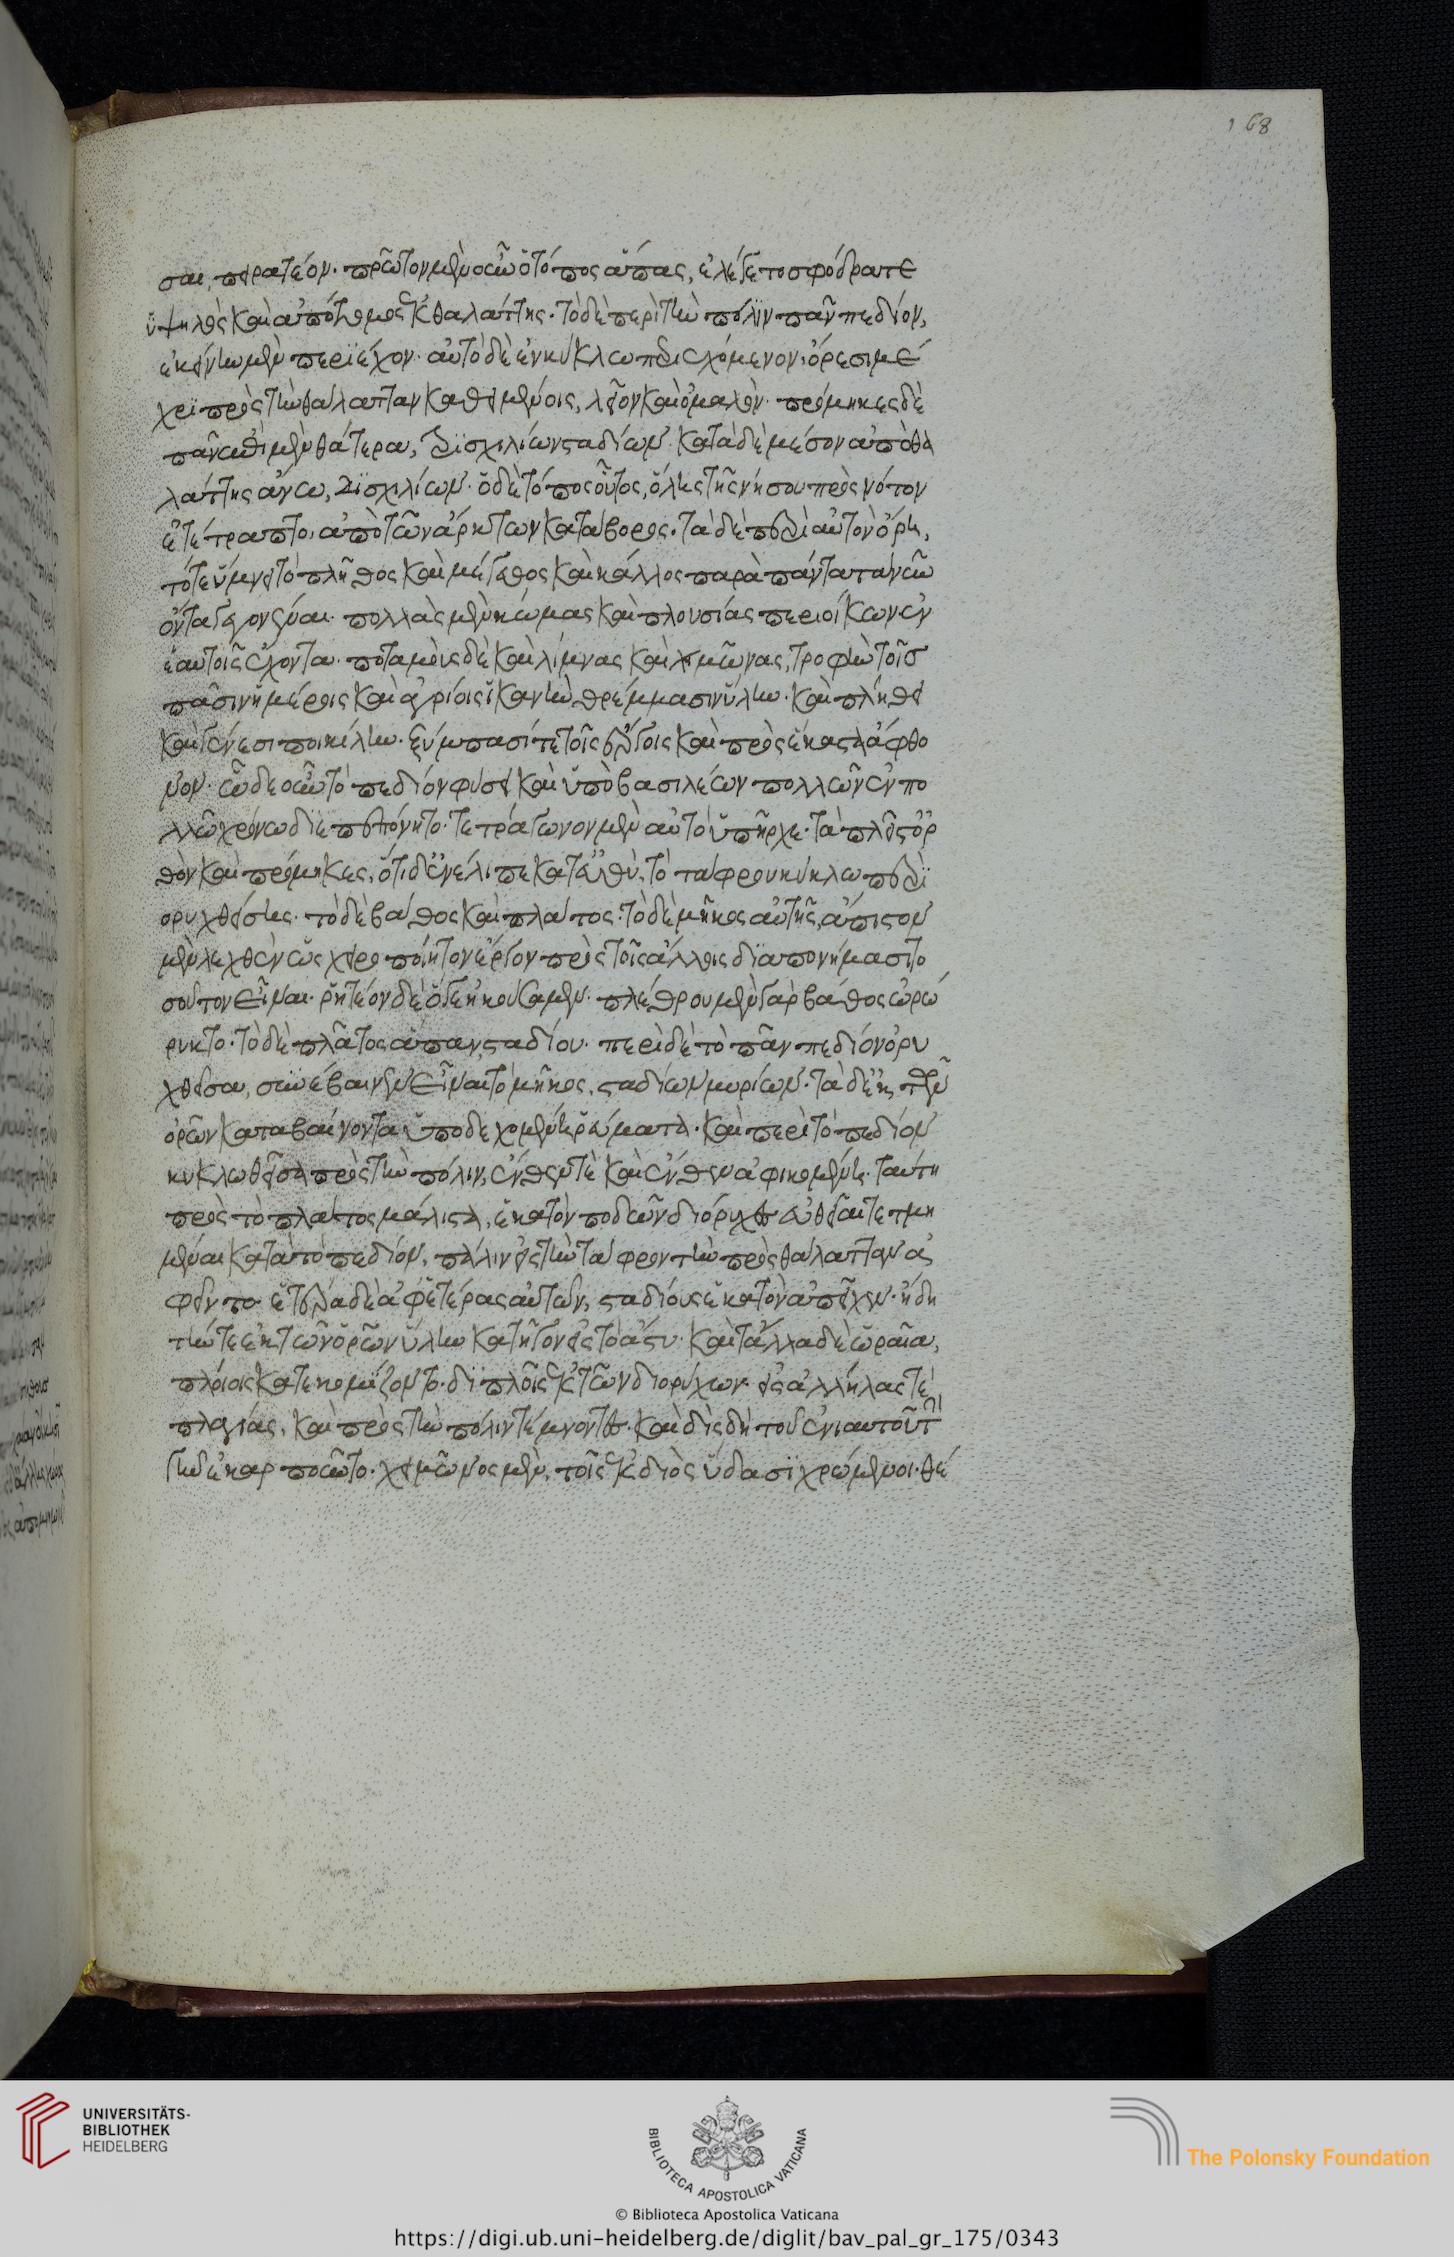 σαι, πειρατέον· πρῶτον μὲν οὖν ὁ τόπος ἅπας, ἐλέγετο σφόδρα τε
ὑψηλὸς καὶ ἀπότομος ἐκ θαλάττης· τὸ δὲ περὶ τὴν πόλιν πᾶν πεδίον,
ἐκείνην μὲν περιέχον· αὐτὸ δὲ ἐν κύκλω περιεχόμενον, ὄρεσι μέ
χρι πρὸς τὴν θάλατταν καθειμένοις, λεῖον καὶ ὁμαλόν· πρόμηκες δὲ
πᾶν· ἐπὶ μὲν θάτερα, τρισχιλίων σταδίων· κατὰ δὲ μέσον ἀπὸ θα
λάττης ἄνω, δισχιλίων· ὁ δὲ τόπος οὗτος, ὅλης τῆς νήσου πρὸς νότον
ἐτέτραπτο, ἀπὸ τῶν ἄρκτων κατάβορος· τὰ δὲ περὶ αὐτὸν ὄρη,
τότε ὑμνεῖτο πλῆθος καὶ μέγεθος καὶ κάλλος παρὰ πάντα τὰ νῦν
ὄντα γεγονέναι· πολλὰς μὲν κώμας καὶ πλουσίας περιοίκων ἐν
ἑαυτοῖς ἔχοντα· ποταμοὺς δὲ καὶ λίμνας καὶ λειμῶνας, τροφὴν τοῖσ
πᾶσιν ἡμέροις καὶ ἀγρίοις ἱκανὴν θρέμμασιν ὕλην· καὶ πλήθει
καὶ γένεσι ποικίλην· ξύμπασί τε τοῖς ἔργοις καὶ πρὸς ἕκαστα ἄφθο
νον· ὧδε οὖν τὸ πεδίον φύσει καὶ ὑπὸ βασιλέων πολλῶν ἐν πο
λλῶ χρόνω διεπεπόνητο· τετράγωνον μὲν αὐτὸ ὑπῆρχε· τὰ πλεῖστ' ὀρ
θὸν καὶ πρόμηκες. ὅτι δ' ἐνέλιπε κατεύθυ, τὸ τάφρου κύκλω περι
ορυχθείσης· τὸ δὲ βάθος καὶ πλάτος· τὸ δὲ μῆκος αὐτῆς, ἄπιστον
μὲν λεχθὲν ὡς χειροποίητον ἔργον πρὸς τοῖς ἄλλοις διαπονήμασι το
σοῦτον εἶναι· ῥητέον δὲ ὅ γε ἠκούσαμεν· πλέθρου μὲν γὰρ βάθος ὀρώ
ρυκτο· τὸ δὲ πλάτος ἅπαν, σταδίου· περὶ δὲ τὸ πᾶν πεδίον ὀρυ
χθεῖσα, συνέβαινεν εἶναι τὸ μῆκος, σταδίων μυρίων· τὰ δ' ἐκ τῶν
ὀρῶν καταβαίνοντα ὑποδεχομένη ῥεύματα· καὶ περὶ τὸ πεδίον
κυκλωθεῖσα πρὸς τὴν πόλιν, ἔνθεν τὲ καὶ ἔνθεν ἀφικομένη· ταύτη
πρὸς τὸ πλάτος μάλιστα, ἑκατὸν ποδῶν διόρυχες εὐθεῖαι τετμη
μέναι κατὰ τὸ πεδίον, πάλιν εἰς τὴν τάφρον τὴν πρὸς θάλατταν ἀ
φεῖντο· ἑτέρα δὲ ἀφ' ἑτέρας αὐτῶν, σταδίους ἑκατὸν ἀπεῖχεν· ἧ δὴ
τήν τε ἐκ τῶν ὀρῶν ὕλην κατῆγον εἰς τὸ ἄστυ· καὶ τἄλλα δὲ ὡραῖα,
πλοίοις κατεκομίζοντο· διάπλους ἐκ τῶν διορύχων· εἰς ἀλλήλας τὲ
πλαγίας. καὶ πρὸς τὴν πόλιν τέμνοντες· καὶ δὶς δὴ τοῦ ἐνιαυτοῦ τὴν
γῆν ἐκαρποῦντο· χειμῶνος μὲν, τοῖς ἐκ διὸς ὕδασι χρώμενοι· θέ
168
UNIVERSITÄTS-
BIBLIOTHEK
HEIDELBERG
BIBLIOTECA APOSTOLICA VATICANA
© Biblioteca Apostolica Vaticana
The Polonsky Foundation
https://digi.ub.uni-heidelberg.de/diglit/bav_pal_gr_175/0343